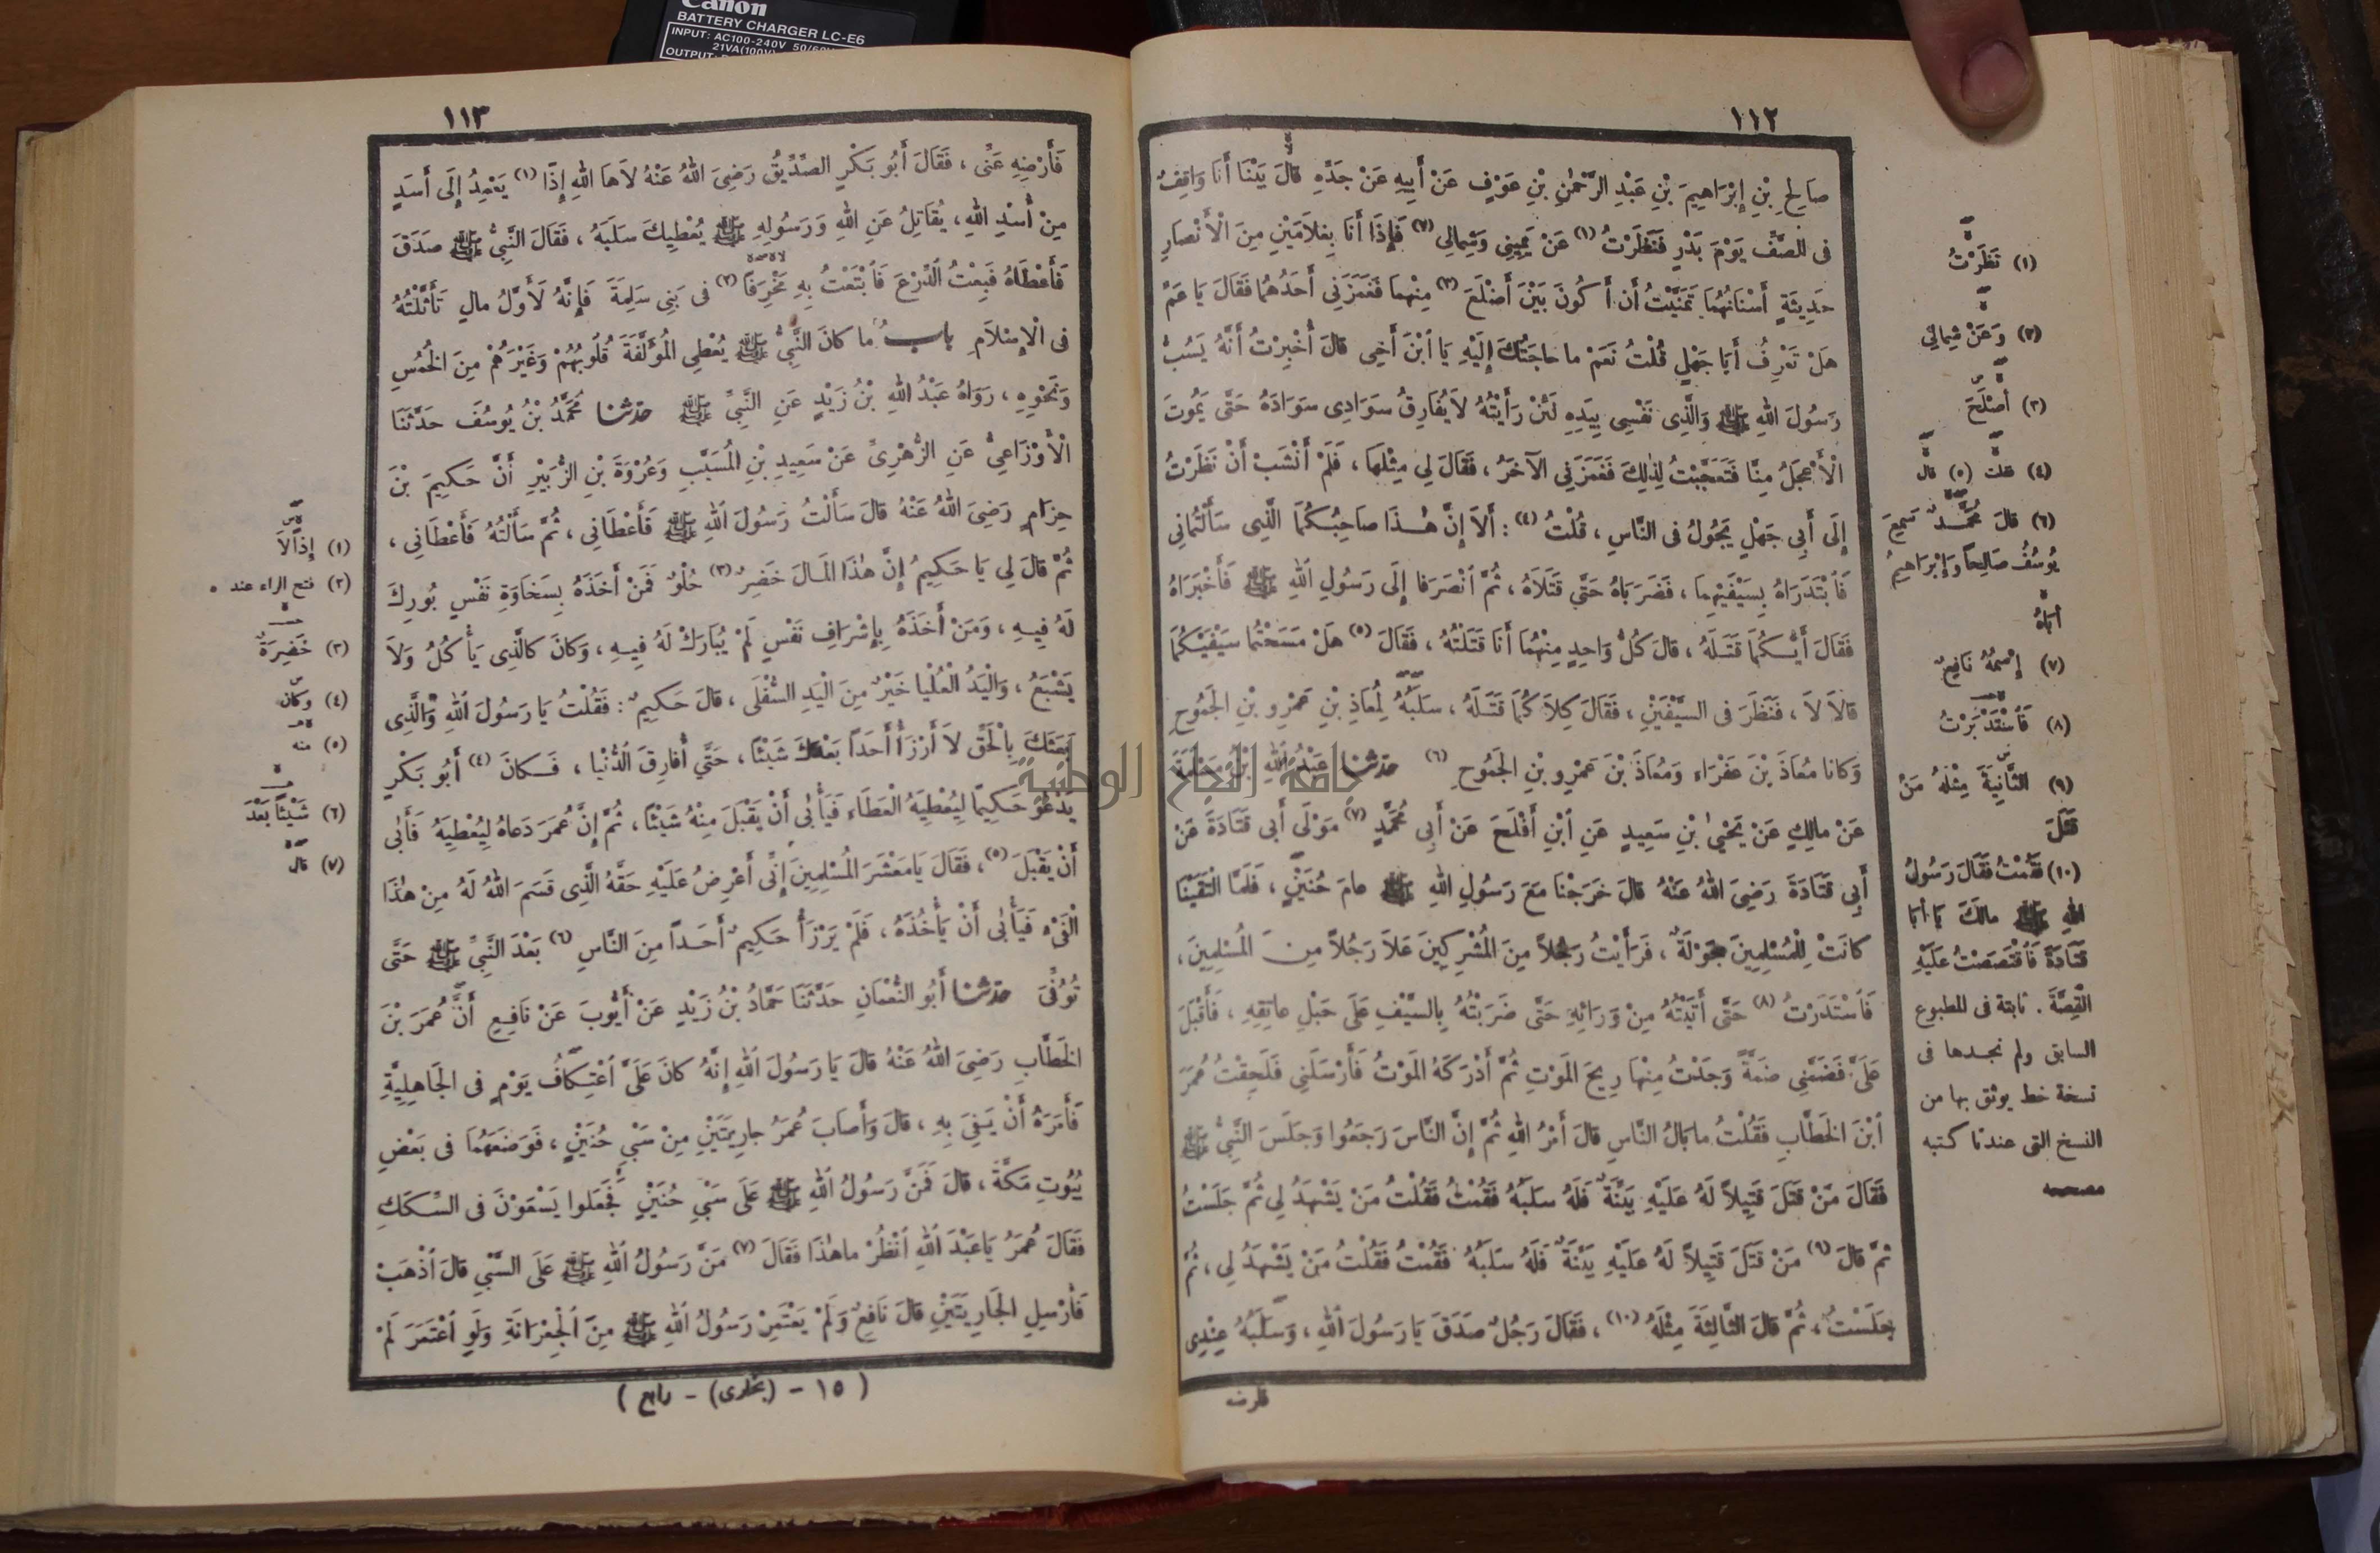 Canon
BATTERY CHARGER LC-E6
INPUT: AC100-240V 50/60H
21VA(100V)
OUTPUT:
١١٢
صَالِحِ بْنِ إِبْرَاهِيمَ بْنِ عَبْدِ الرَّحْمٰنِ بْنِ عَوْفٍ عَنْ أَبِيهِ عَنْ جَدِّهِ قالَ بَيْنَا أَنَا وَاقِفٌ
فى الصَّفِّ يَوْمَ بَدْرٍ فَنَظَرْتُ (١) عَنْ يَمِينِي وَشِمالِي (٢) فَإِذَا أَنَا بِغلاَمَيْنِ مِنَ الْأَنْصَارِ
حَدِيثَةٍ أَسْنَانُهُمَا تَمَنَّيْتُ أَن أَكُونَ بَيْنَ أَضْلَعَ (٣) مِنْهما فَغَمَزَنِي أَحَدُهُما فَقَالَ يَا عَمِّ
هَلْ تَعْرِفُ أَبَا جَهْلٍ قُلْتُ نَعَمْ ما حاجَتُكَ إِلَيْهِ يَا ابْنَ أَخِى قالَ أُخْبِرْتُ أَنَّهُ يَسُبُّ
رَسُولَ اللهِ ﷺ وَالَّذِى نَفْسِى بِيَدِهِ لَئِنْ رَأَيْتُهُ لاَ يُفَارِقُ سَوَادِى سَوَادَهُ حَتَّى يَمُوتَ
الْأَعْجَلُ مِنَّا فَتَعَجَّبْتُ لِذٰلِكَ فَغَمَزَنِي الآخَرُ ، فَقَالَ لِي مِثْلَهَا ، فَلَمْ أَنْشَبْ أَنْ نَظَرْتُ
إِلَى أَبِي جَهْلٍ يَجُولُ فى النَّاسِ ، قُلْتُ (٤) : أَلاَ إِنَّ هٰذَا صَاحِبُكُمَا الَّذِى سَأَلْتُمانِي
فَابْتَدَرَاهُ بِسَيْفَيْهِما ، فَضَرَبَاهُ حَتَّى قَتَلاَهُ ، ثُمَّ انْصَرَفا إِلَى رَسُولِ اللهِ ﷺ فَأَخْبَرَاهُ
فَقَالَ أَيُّكُمَا قَتَلَهُ ، قالَ كُلُّ وَاحِدٍ مِنْهُمَا أَنَا قَتَلْتُهُ ، فَقَالَ (٥) هَلْ مَسَحْتُما سَيْفَيْكُمَا
قالاَ لاَ ، فَنَظَرَ فى السَّيْفَيْنِ ، فَقَالَ كِلاَ كُمَا قَتَلَهُ ، سَلَبُهُ لِمُعَاذِ بْنِ عَمْرِو بْنِ الجَمُوحِ
وَكانا مُعَاذَ بْنَ عَفْرَاء وَمُعَاذَ بْنَ عَمْرِو بْنِ الجَمُوحِ (٦) حدّثنا عَبْدُ اللهِ بْنُ مَسْلَمَةَ
عَنْ مالِكٍ عَنْ يَحْيٰى بْنِ سَعِيدٍ عَنِ ابْنِ أَفْلَحَ عَنْ أَبِي مُحَمَّدٍ (٧) مَوْلَى أَبِى قَتَادَةَ عَنْ
أَبِى قَتَادَةَ رَضِىَ اللهُ عَنْهُ قالَ خَرَجْنَا مَعَ رَسُولِ اللهِ ﷺ عامَ حُنَيْنٍ ، فَلَمَّا الْتَقَيْنَا
كانَتْ لِلْمُسْلِمِينَ جَوْلَةٌ ، فَرَأَيْتُ رَجُلاً مِنَ المُشْرِكِينَ عَلاَ رَجُلاً مِنَ المُسْلِمِينَ ،
فَاسْتَدَرْتُ (٨) حَتَّى أَتَيْتُهُ مِنْ وَرَائِهِ حَتَّى ضَرَبْتُهُ بِالسَّيْفِ عَلَى حَبْلِ عاتِقِهِ ، فَأَقْبَلَ
عَلَىَّ فَضَمَّنِي ضَمَّةً وَجَدْتُ مِنْهَا رِيحَ المَوْتِ ثُمَّ أَدْرَكَهُ المَوْتُ فَأَرْسَلَنِي فَلَحِقْتُ عُمَرَ
ابْنَ الخَطَّابِ فَقُلْتُ ما بَالُ النَّاسِ قالَ أَمْرُ اللهِ ثُمَّ إِنَّ النَّاسَ رَجَعُوا وَجَلَسَ النَّبِيُّ ﷺ
فَقَالَ مَنْ قَتَلَ قَتِيلاً لَهُ عَلَيْهِ بَيِّنَةٌ فَلَهُ سَلَبُهُ فَقُمْتُ فَقُلْتُ مَنْ يَشْهَدُ لِي ثُمَّ جَلَسْتُ
ثُمَّ قالَ (٩) مَنْ قَتَلَ قَتِيلاً لَهُ عَلَيْهِ بَيِّنَةٌ فَلَهُ سَلَبُهُ فَقُمْتُ فَقُلْتُ مَنْ يَشْهَدُ لِي ، ثُمَّ
جَلَسْتُ ، ثُمَّ قالَ الثَّالِثَةَ مِثْلَهُ (١٠) ، فَقَالَ رَجُلٌ صَدَقَ يَا رَسُولَ اللهِ ، وَسَلَبُهُ عِنْدِى
فأرضه
(١) نَظَرْتُ
(٢) وَعَنْ شِمالِي
(٣) أَصْلَحَ
(٤) قلت (٥) قال
(٦) قالَ مُحَمَّدٌ سَمِعَ
يُوسُفُ صَالِحًا وَإِبْرَاهِيمَ
أَبَاهُ
(٧) إِسْمُهُ نَافِعٌ
(٨) فَاسْتَدْبَرْتُ
(٩) الثَّانِيَةَ مِثْلَهُ مَنْ
قَتَلَ
(١٠) فَقُمْتُ فَقَالَ رَسُولُ
اللهِ ﷺ مالَكَ يَا أَبَا
قَتَادَةَ فَاقْتَصَصْتُ عَلَيْهِ
الْقِصَّةَ . ثابتة فى المطبوع
السابق ولم نجدها فى
نسخة خط يوثق بها من
النسخ التى عندنا كتبه
مصححه
١١٣
فَأَرْضِهِ عَنِّى ، فَقَالَ أَبُو بَكْرٍ الصِّدِّيقُ رَضِىَ اللهُ عَنْهُ لاَهَا اللهِ إِذًا (١) يَعْمِدُ إِلَى أَسَدٍ
مِنْ أُسْدِ اللهِ ، يُقَاتِلُ عَنِ اللهِ وَرَسُولِهِ ﷺ يُعْطِيكَ سَلَبَهُ ، فَقَالَ النَّبِيُّ ﷺ صَدَقَ
فَأَعْطَاهُ فَبِعْتُ الدِّرْعَ فَابْتَعْتُ بِهِ مَخْرِفًا (٢) فى بَنِى سَلِمَةَ فَإِنَّهُ لَأَوَّلُ مالٍ تَأَثَّلْتُهُ
فى الْإِسْلاَمِ باب ما كانَ النَّبِيُّ ﷺ يُعْطِى المُؤَلَّفَةَ قُلُوبُهُمْ وَغَيْرَهُمْ مِنَ الخُمُسِ
وَنَحْوِهِ ، رَوَاهُ عَبْدُ اللهِ بْنُ زَيْدٍ عَنِ النَّبِيِّ ﷺ حدّثنا مُحَمَّدُ بْنُ يُوسُفَ حَدَّثَنَا
الْأَوْزَاعِىُّ عَنِ الزُّهْرِىِّ عَنْ سَعِيدِ بْنِ المُسَيَّبِ وَعُرْوَةَ بْنِ الزُّبَيْرِ أَنَّ حَكِيمَ بْنَ
حِزَامٍ رَضِىَ اللهُ عَنْهُ قالَ سَأَلْتُ رَسُولَ اللهِ ﷺ فَأَعْطَانِي ، ثُمَّ سَأَلْتُهُ فَأَعْطَانِي ،
ثُمَّ قالَ لِي يَا حَكِيمُ إِنَّ هٰذَا المَالَ خَضِرٌ (٣) حُلْوٌ فَمَنْ أَخَذَهُ بِسَخَاوَةِ نَفْسٍ بُورِكَ
لَهُ فِيهِ ، وَمَنْ أَخَذَهُ بِإِشْرَافِ نَفْسٍ لَمْ يُبَارَكْ لَهُ فِيهِ ، وَكانَ كالَّذِى يَأْكُلُ وَلاَ
يَشْبَعُ ، وَالْيَدُ الْعُلْيا خَيْرٌ مِنَ الْيَدِ السُّفْلَى ، قالَ حَكِيمٌ : فَقُلْتُ يَا رَسُولَ اللهِ وَالَّذِى
بَعَثَكَ بِالْحَقِّ لاَ أَرْزَأُ أَحَدًا بَعْدَكَ شَيْئًا ، حَتَّى أُفارِقَ الدُّنْيا ، فَكانَ (٤) أَبُو بَكْرٍ
يَدْعُو حَكِيمًا لِيُعْطِيَهُ الْعَطَاء فَيَأْبٰى أَنْ يَقْبَلَ مِنْهُ شَيْئًا ، ثُمَّ إِنَّ عُمَرَ دَعاهُ لِيُعْطِيَهُ فَأَبٰى
أَنْ يَقْبَلَ (٥) ، فَقَالَ يَا مَعْشَرَ المُسْلِمِينَ إِنِّى أَعْرِضُ عَلَيْهِ حَقَّهُ الَّذِى قَسَمَ اللهُ لَهُ مِنْ هٰذَا
الْفَىْءِ فَيَأْبٰى أَنْ يَأْخُذَهُ ، فَلَمْ يَرْزَأْ حَكِيمٌ أَحَدًا مِنَ النَّاسِ (٦) بَعْدَ النَّبِيِّ ﷺ حَتَّى
تُوُفِّىَ حدّثنا أَبُو النُّعْمَانِ حَدَّثَنَا حَمَّادُ بْنُ زَيْدٍ عَنْ أَيُّوبَ عَنْ نَافِعٍ أَنَّ عُمَرَ بْنَ
الخَطَّابِ رَضِىَ اللهُ عَنْهُ قالَ يَا رَسُولَ اللهِ إِنَّهُ كانَ عَلَىَّ اعْتِكَافُ يَوْمٍ فى الجَاهِلِيَّةِ
فَأَمَرَهُ أَنْ يَفِىَ بِهِ ، قالَ وَأَصَابَ عُمَرُ جارِيَتَيْنِ مِنْ سَبْىِ حُنَيْنٍ ، فَوَضَعَهُمَا فى بَعْضِ
بُيُوتِ مَكَّةَ ، قالَ فَمَنَّ رَسُولُ اللهِ ﷺ عَلَى سَبْىِ حُنَيْنٍ فَجَعَلُوا يَسْعَوْنَ فى السِّكَكِ
فَقَالَ عُمَرُ يَا عَبْدَ اللهِ انْظُرْ ما هٰذَا فَقَالَ (٧) مَنَّ رَسُولُ اللهِ ﷺ عَلَى السَّبْىِ قالَ اذْهَبْ
فَأَرْسِلِ الجَارِيَتَيْنِ قالَ نَافِعٌ وَلَمْ يَعْتَمِرْ رَسُولُ اللهِ ﷺ مِنَ الْجِعْرَانَةِ وَلَوِ اعْتَمَرَ لَمْ
(١٥ - (بخارى) - رابع)
(١) إِذًا لَا
(٢) فتح الراء عند ه
(٣) خَضِرَةٌ
(٤) وكان
(٥) منه
(٦) شَيْئًا بَعْدَ
(٧) قال
جامعة النجاح الوطنية